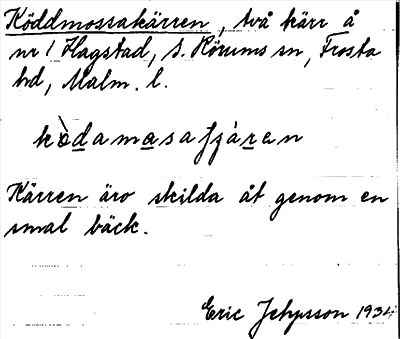 Köddmossakärren, två kärr å
nr 1 Hagstad, S. Rörums sn, Frosta
hd, Malm. l.
kòdamasafjáren
Kärren äro skilda åt genom en
smal bäck.
Eric Jehpsson 1934